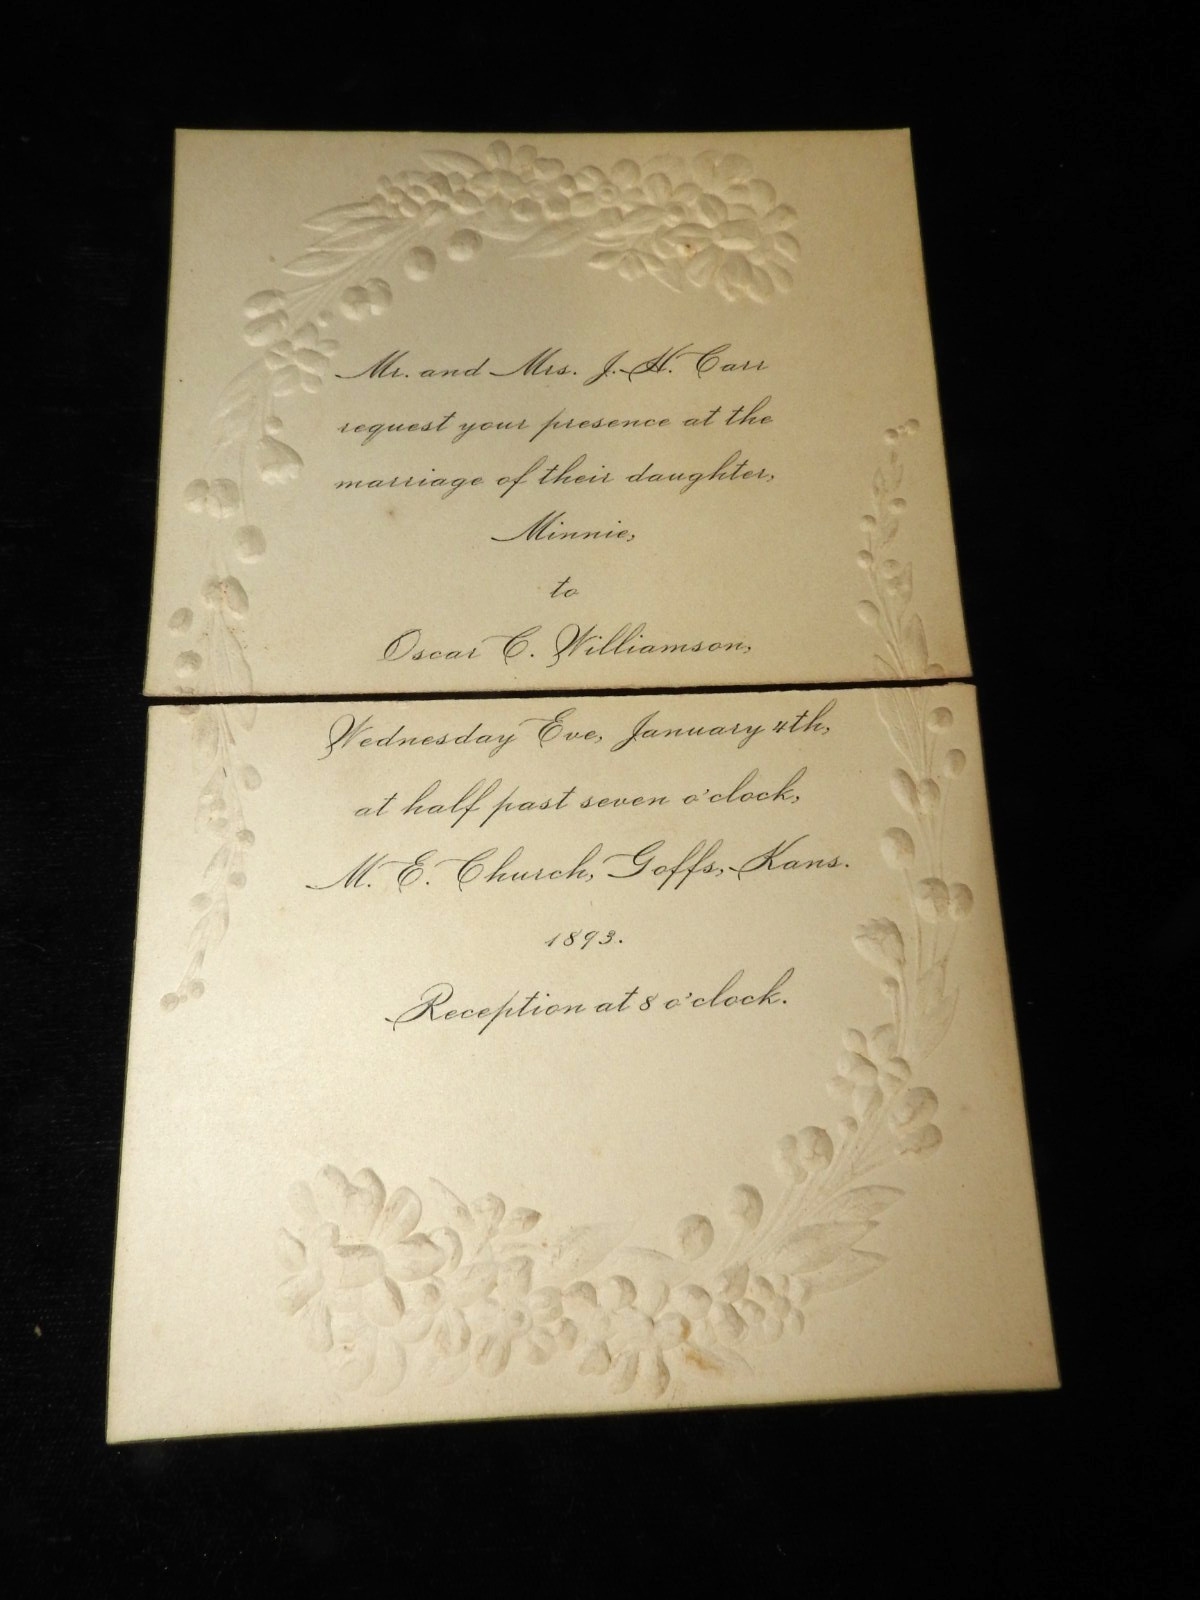 Mr. and Mrs. J. H. Carr
request your presence at the
marriage of their daughter,
Minnie,
to
Oscar C. Williamson,
Wednesday Eve, January 4th,
at half past seven o'clock,
M. E. Church, Goffs, Kans.
1893.
Reception at 8 o'clock.